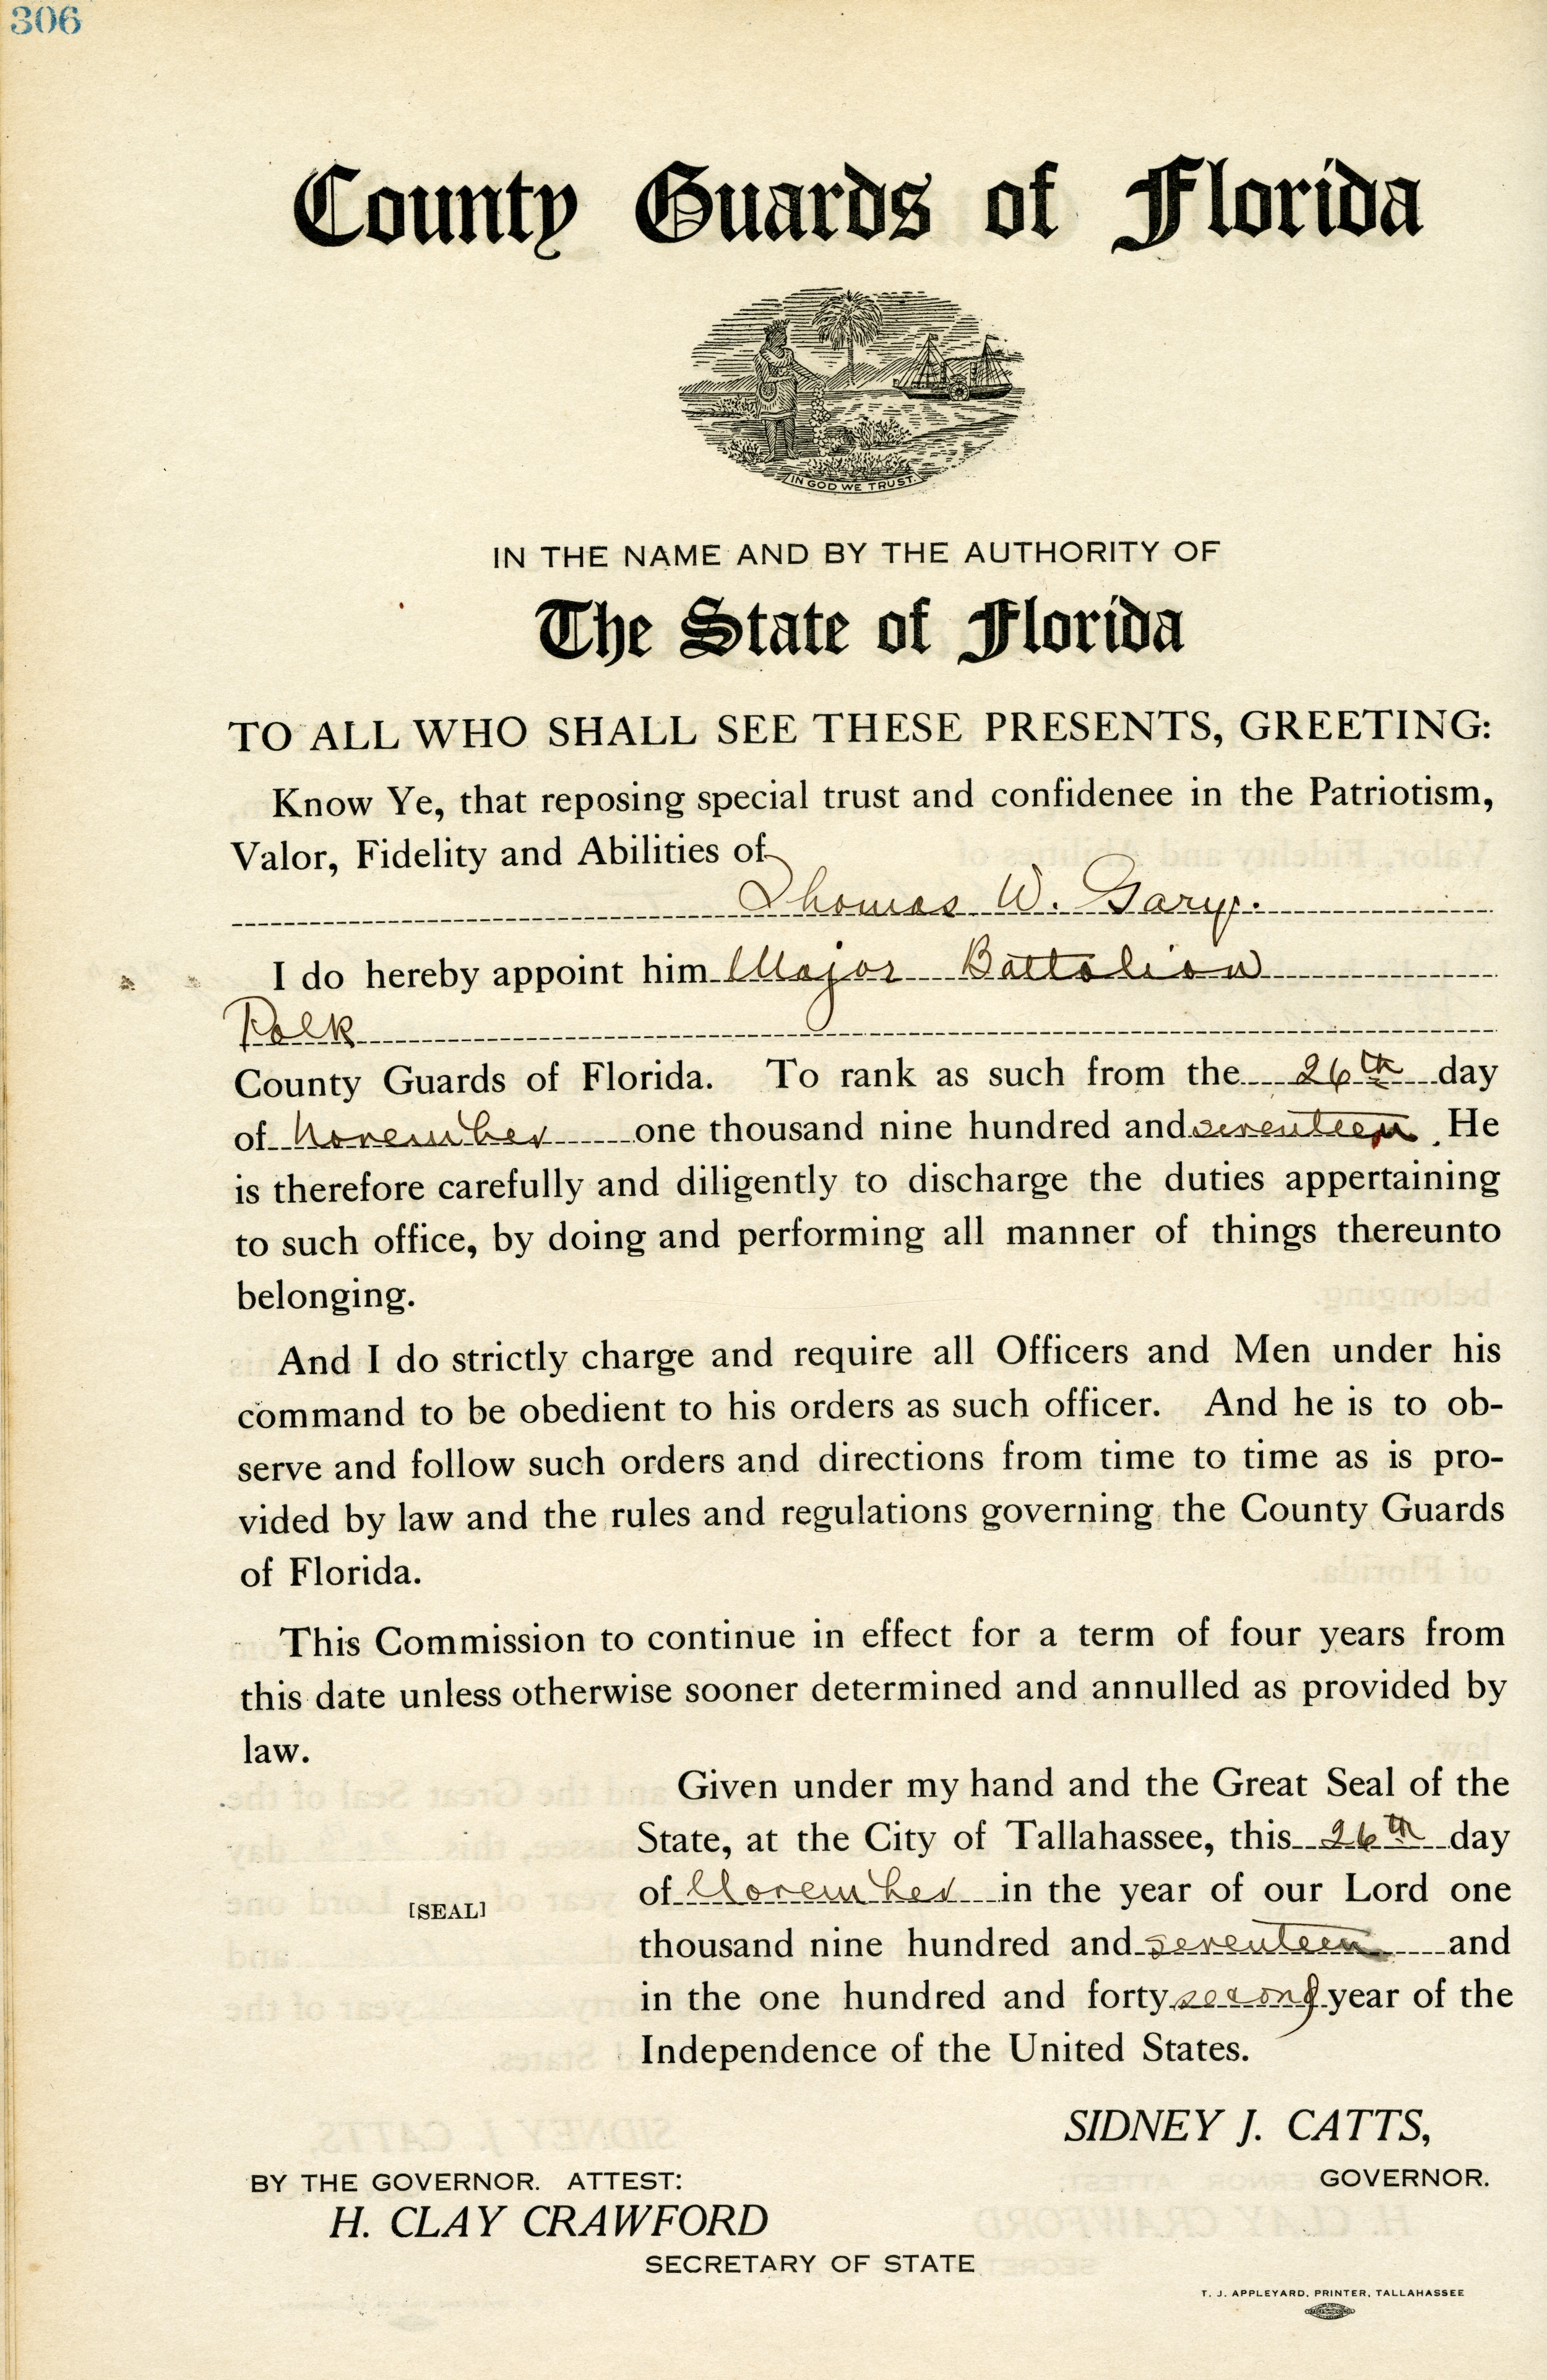 306
County Guards of Florida
IN GOD WE TRUST.
IN THE NAME AND BY THE AUTHORITY OF
The State of Florida
TO ALL WHO SHALL SEE THESE PRESENTS, GREETING:
Know Ye, that reposing special trust and confidenee in the Patriotism,
Valor, Fidelity and Abilities of
Thomas W. Gary.
I do hereby appoint him Major Battalion
Polk
County Guards of Florida. To rank as such from the 26th day
of November one thousand nine hundred and seventeen. He
is therefore carefully and diligently to discharge the duties appertaining
to such office, by doing and performing all manner of things thereunto
belonging.
And I do strictly charge and require all Officers and Men under his
command to be obedient to his orders as such officer. And he is to ob-
serve and follow such orders and directions from time to time as is pro-
vided by law and the rules and regulations governing the County Guards
of Florida.
This Commission to continue in effect for a term of four years from
this date unless otherwise sooner determined and annulled as provided by
law.
Given under my hand and the Great Seal of the
State, at the City of Tallahassee, this 26th day
of November in the year of our Lord one
[SEAL]
thousand nine hundred and seventeen and
in the one hundred and forty second year of the
Independence of the United States.
SIDNEY J. CATTS,
GOVERNOR.
BY THE GOVERNOR. ATTEST:
H. CLAY CRAWFORD
SECRETARY OF STATE
T. J. APPLEYARD, PRINTER, TALLAHASSEE